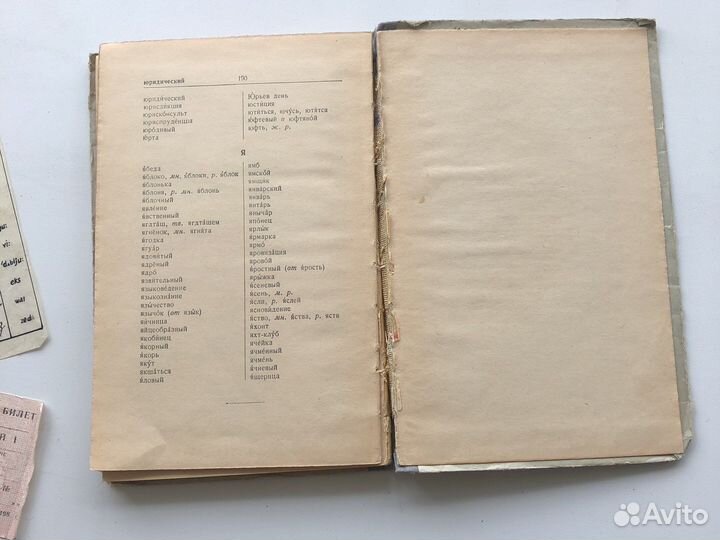 юридический 190
юриди́ческий
юрисди́кция
юриско́нсульт
юриспруде́нция
юро́дивый
ю́рта
Ю́рьев день
юсти́ция
юти́ться, ючу́сь, ютя́тся
ю́фтевый и юфтяно́й
юфть, ж. р.
Я
я́беда
я́блоко, мн. я́блоки, р. я́блок
я́блонька
я́блоня, р. мн. я́блонь
я́блочный
явле́ние
я́вственный
ягдта́ш, тв. ягдта́шем
ягнёнок, мн. ягня́та
я́годка
ягуа́р
ядови́тый
ядрёный
ядро́
язви́тельный
языкове́дение
языкозна́ние
язы́чество
язычо́к (от язы́к)
яи́чница
яйцеобра́зный
якоби́нец
я́корный
я́корь
яку́т
якша́ться
я́ловый
ямб
ямско́й
ямщи́к
янва́рский
янва́рь
янта́рь
яныча́р
япо́нец
ярлы́к
я́рмарка
ярмо́
яровиза́ция
ярово́й
я́ростный (от я́рость)
яры́жка
я́сеневый
я́сень, м. р.
я́сли, р. я́слей
яснови́дение
я́ство, мн. я́ства, р. яств
я́хонт
яхт-клу́б
яче́йка
ячме́нный
ячме́нь
я́чневый
я́щерица
vi:
'dʌblju:
eks
wai
zed
БИЛЕТ
Avito